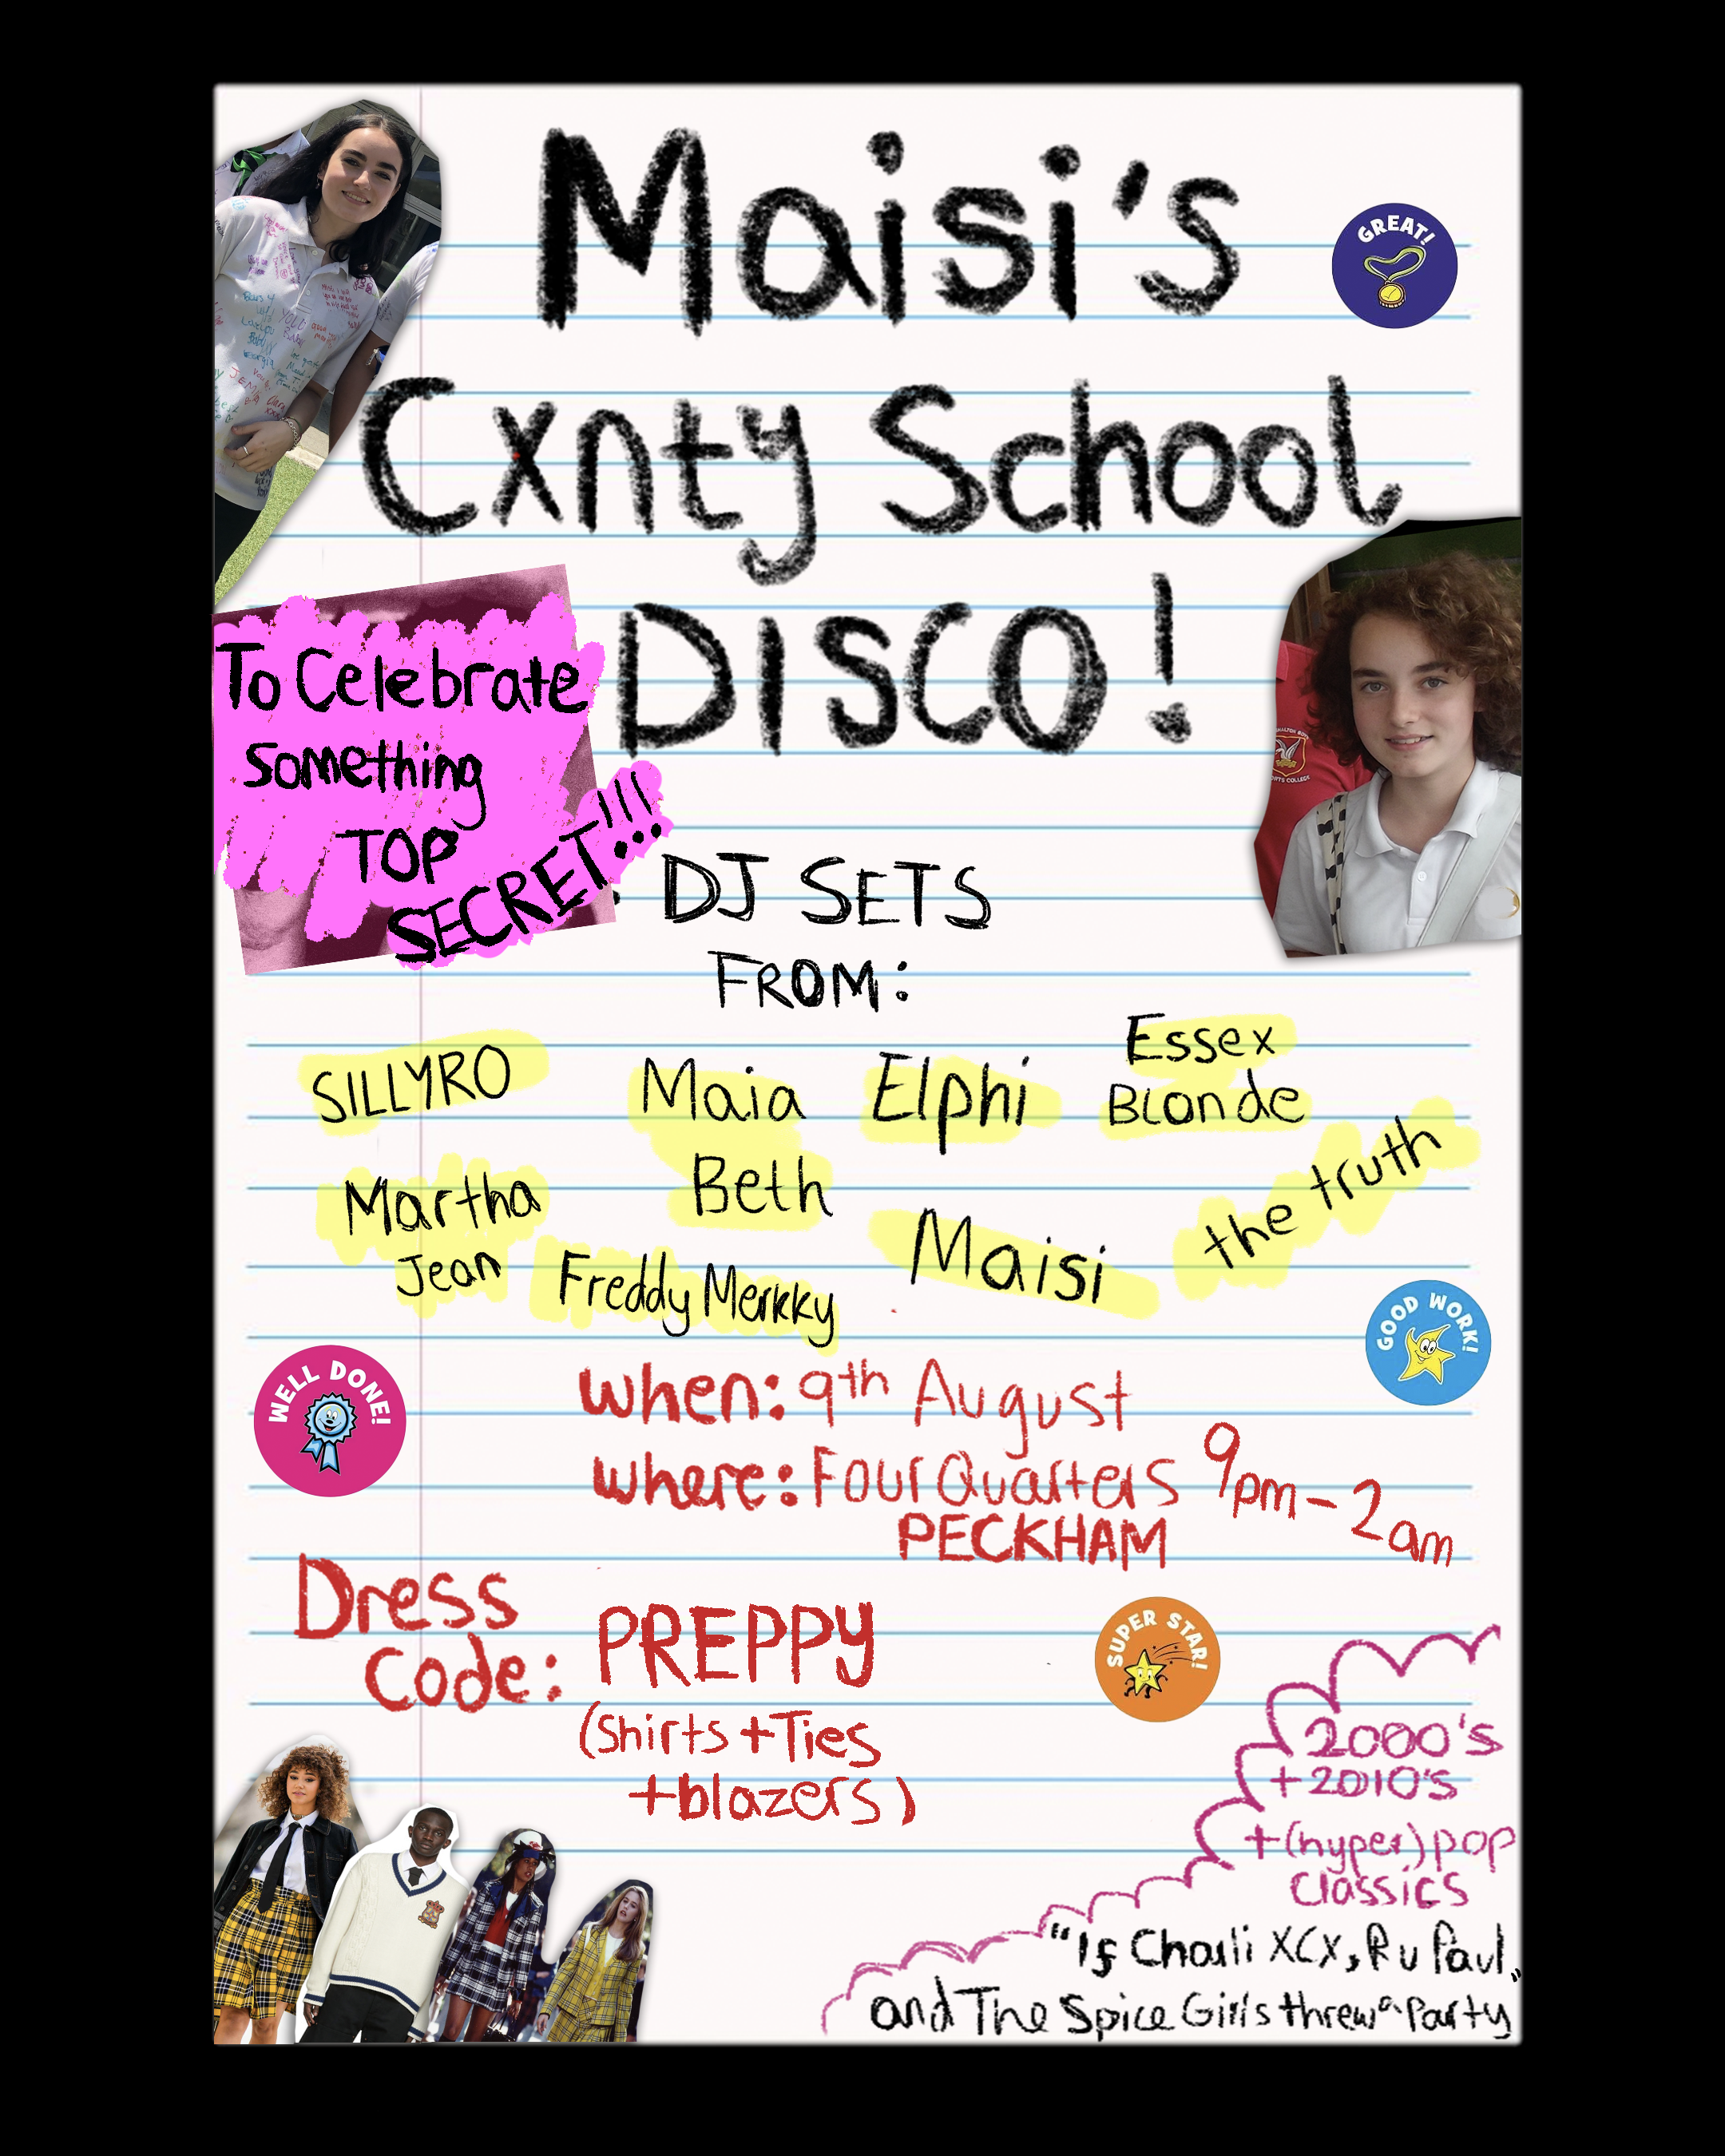 Maisi's
Cxnty School
DISCO!
GREAT!
To Celebrate
Something
TOP
SECRET!!!
DJ SETS
FROM:
SILLYRO
Maia
Beth
Elphi
Essex
Blonde
Martha
Jean
Freddy Merkky
Maisi
the truth
WELL DONE!
GOOD WORK!
when: 9th August
where: Four Quarters
PECKHAM
9pm - 2am
Dress
Code:
PREPPY
(Shirts + Ties
+ blazers)
SUPER STAR!
2000's
+ 2010's
+ (hyper)pop
Classics
"If Charli XCX, Ru Paul
and The Spice Girls threw a Party"